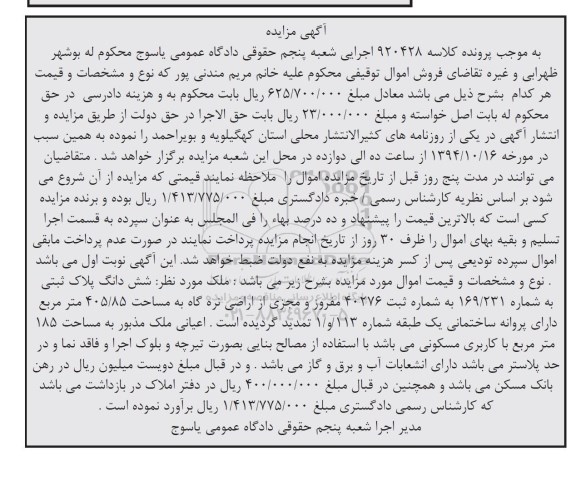 آگهی مزایده
به موجب پرونده کلاسه ۹۲۰۴۲۸ اجرایی شعبه پنجم حقوقی دادگاه عمومی یاسوج محکوم له بوشهر
ظهرابی و غیره تقاضای فروش اموال توقیفی محکوم علیه خانم مریم مندنی پور که نوع و مشخصات و قیمت
هر کدام بشرح ذیل می باشد معادل مبلغ ۶۲۵/۷۰۰/۰۰۰ ریال بابت محکوم به و هزینه دادرسی در حق
محکوم له بابت اصل خواسته و مبلغ ۲۳/۰۰۰/۰۰۰ ریال بابت حق الاجرا در حق دولت از طریق مزایده و
انتشار آگهی در یکی از روزنامه های کثیرالانتشار محلی استان کهگیلویه و بویراحمد را نموده به همین سبب
در مورخه ۱۳۹۴/۱۰/۱۶ از ساعت ده الی دوازده در محل این شعبه مزایده برگزار خواهد شد . متقاضیان
می توانند در مدت پنج روز قبل از تاریخ مزایده اموال را ملاحظه نمایند قیمتی که مزایده از آن شروع می
شود بر اساس نظریه کارشناس رسمی / خبره دادگستری مبلغ ۱/۴۱۳/۷۷۵/۰۰۰ ریال بوده و برنده مزایده
کسی است که بالاترین قیمت را پیشنهاد و ده درصد بهاء را فی المجلس به عنوان سپرده به قسمت اجرا
تسلیم و بقیه بهای اموال را ظرف ۳۰ روز از تاریخ انجام مزایده پرداخت نمایند در صورت عدم پرداخت مابقی
اموال سپرده تودیعی پس از کسر هزینه مزایده به نفع دولت ضبط خواهد شد. این آگهی نوبت اول می باشد
. نوع و مشخصات و قیمت اموال مورد مزایده بشرح زیر می باشد : ملک مورد نظر: شش دانگ پلاک ثبتی
به شماره ۱۶۹/۲۳۱ به شماره ثبت ۴۰۲۷۶ مفروز و مجزی از اراضی تره گاه به مساحت ۴۰۵/۸۵ متر مربع
دارای پروانه ساختمانی یک طبقه شماره ۱۱۳/و/۱ تمدید گردیده است . اعیانی ملک مذبور به مساحت ۱۸۵
متر مربع با کاربری مسکونی می باشد با استفاده از مصالح بنایی بصورت تیرچه و بلوک اجرا و فاقد نما و در
حد پلاستر می باشد دارای انشعابات آب و برق و گاز می باشد . و در قبال مبلغ دویست میلیون ریال در رهن
بانک مسکن می باشد و همچنین در قبال مبلغ ۴۰۰/۰۰۰/۰۰۰ ریال در دفتر املاک در بازداشت می باشد
که کارشناس رسمی دادگستری مبلغ ۱/۴۱۳/۷۷۵/۰۰۰ ریال برآورد نموده است .
مدیر اجرا شعبه پنجم حقوقی دادگاه عمومی یاسوج